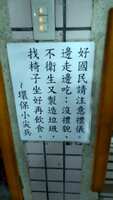 好國民請注意禮儀，
邊走邊吃…沒禮貌，
不衛生又製造垃圾，
找椅子坐好再飲食。
～環保小尖兵